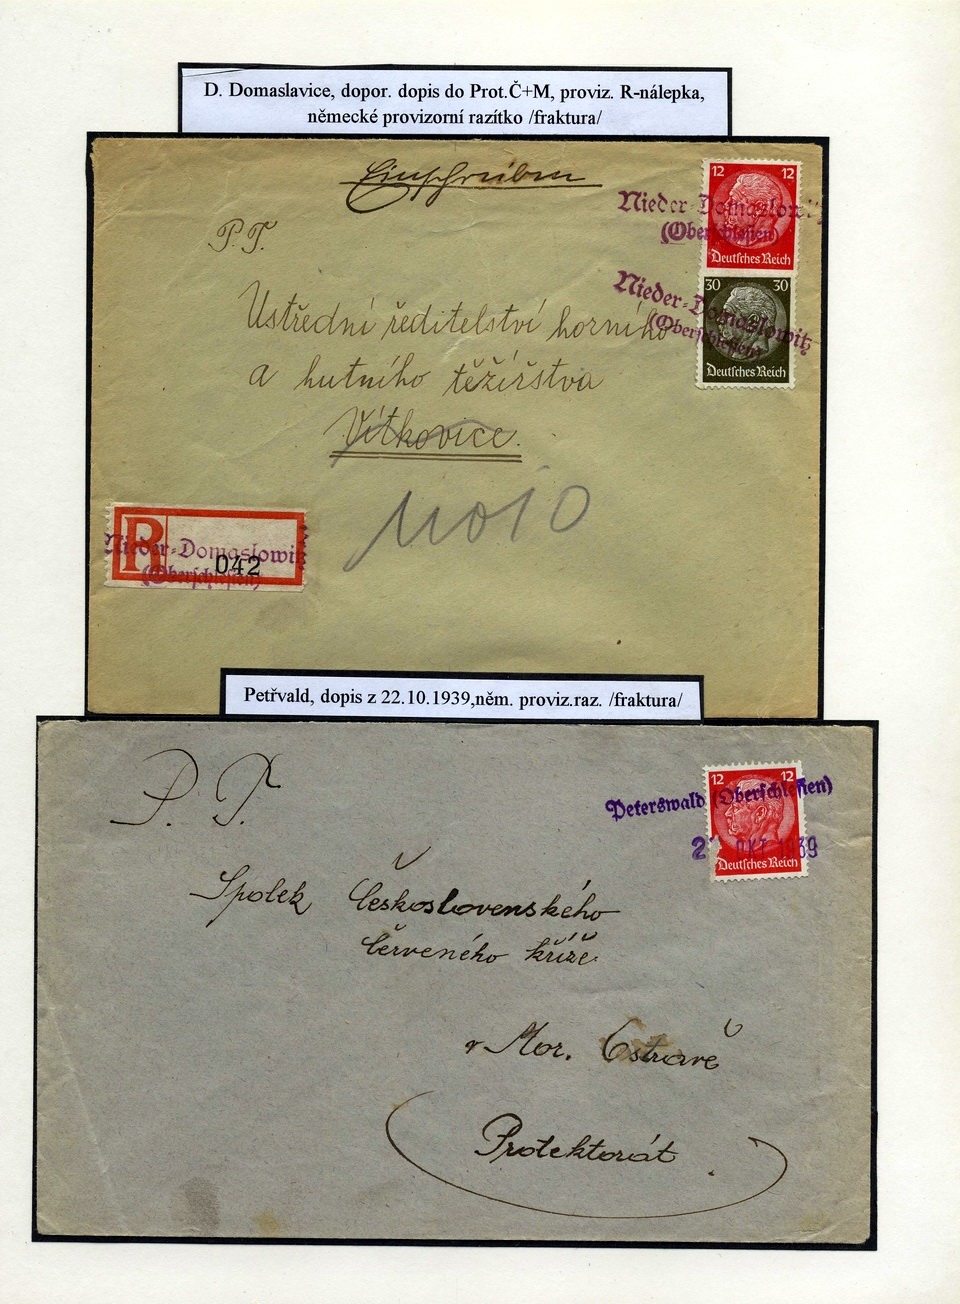 D. Domaslavice, dopor. dopis do Prot.Č+M, proviz. R-nálepka,
německé provizorní razítko /fraktura/
Einschreiben
P.T.
Ustřední ředitelství horního
a hutního těžířstva
Vítkovice.
12 12
Deutsches Reich
Nieder-Domaslowitz
(Oberschlesien)
30 30
Deutsches Reich
Nieder-Domaslowitz
(Oberschlesien)
R
Nieder-Domaslowitz
(Oberschlesien)
042
Petřvald, dopis z 22.10.1939,něm. proviz.raz. /fraktura/
P. T.
12 12
Deutsches Reich
Peterswald (Oberschlesien)
OKT 1939
Spolek Československého
červeného kříže
v Mor. Ostravě
Protektorát.